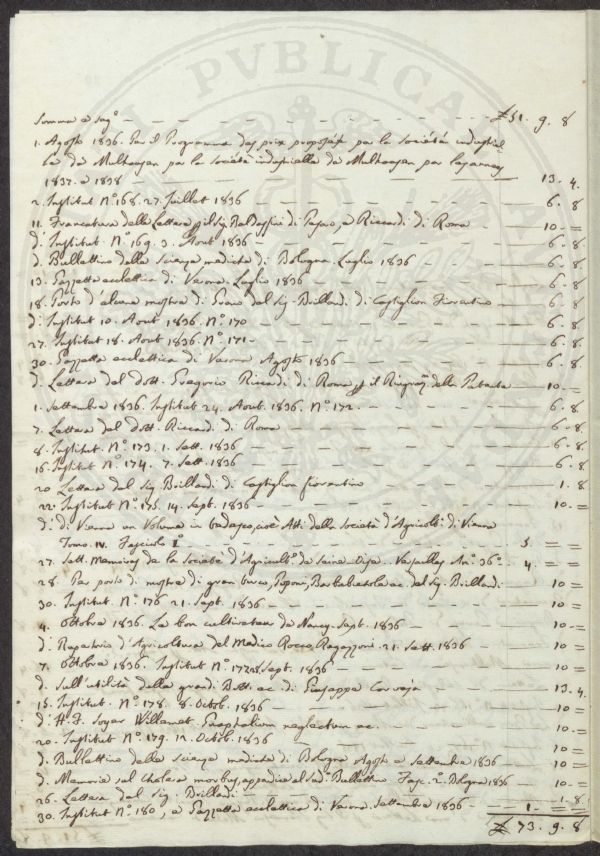 PVBLICA
Somma e seg.o £ 51. 9. 8
1. Agosto 1836. Per il Programma des prix proposés par la Société industriel
le de Mulhausen par la Società industrielle de Mulhausen per
1837. e 1838 13. 4.
2. Institut N.o 168. 27. Juillet 1836 6. 8
11. Francatura della Lettera il Sig. Baldassini di Pesaro, e Riccardi di Roma 10. =
d. Institut. N.o 169. 3. Aout 1836 6. 8.
d. Bullettino delle Scienze mediche di Bologna. Luglio 1836 6. 8.
13. Gazzetta eclettica di Verona. Luglio 1836 6. 8
18. Porto d'alcune mostre di Grano del Sig. Brillandi di Castiglion Fiorentino 6. 8
d. Institut 10. Aout 1836. N.o 170 6. 8
27. Institut 18. Aout 1836. N.o 171 6. 8.
30. Gazzetta eccllettica di Verona Agosto 1836 6. 8
d. Lettera del dott. Gregorio Riccardi di Roma il Ringraz. della Patente 10. =
1. Settembre 1836. Institut 24. Aout. 1836. N.o 172. 6. 8
7. Lettera del dott. Riccardi di Roma 6. 8.
8. Institut N.o 173. 1. Sett. 1836 6. 8
16. Institut N.o 174. 7. Sett. 1836 6. 8
20. Lettera del Sig. Brillandi di Castiglion fiorentino 1. 8.
22. Institut N.o 175. 14. Sept. 1836 10. =
d. di Vienna un Volume in tedesco, cioè Atti della Società d'Agricolt.a di Vienna
Tomo. IV. Fascicolo I.o 5. = =
27. Sett. Memoires de la Société d'Agricult.e de Seine Oise. Versailles An. 36.o 4. = =
28. Per porto di mostre di gran turco, Poponi, Barbabietola ec. del Sig. Brillandi 10 =
30. Institut N.o 176 21. Sept. 1836 10 =
4. Ottobre 1836. Le bon cultivateur de Nancy. Sept. 1836 10. =
d. Repertorio d'Agricoltura del Medico Rocco Ragazzoni. 21. Sett. 1836 10. =
7. Ottobre 1836. Institut N.o 177 28 Sept. 1836 10. =
d. Sull'utilità delle grandi Bett. ec. di Giuseppe Corvaja 13. 4
15. Institut. N.o 178. 8. Octob. 1836 10. =
d. H. F. Soyer Willemet. Gnaphalium neglectum ec. 10. =
20. Institut N.o 179. 12. Octob. 1836 10. =
d. Bullettino delle Scienze mediche di Bologna Agosto e Settembre 1836 10. =
d. Memorie sul Cholera morbus, appendice al sud.o Bullettino. Fasc. 2.o Bologna 1836 10. =
26. Lettera del Sig. Brillandi 1. 8.
30. Institut N.o 180, e Gazzetta eccllettica di Verona. Settembre 1836 1. = =
£ 73. 9. 8